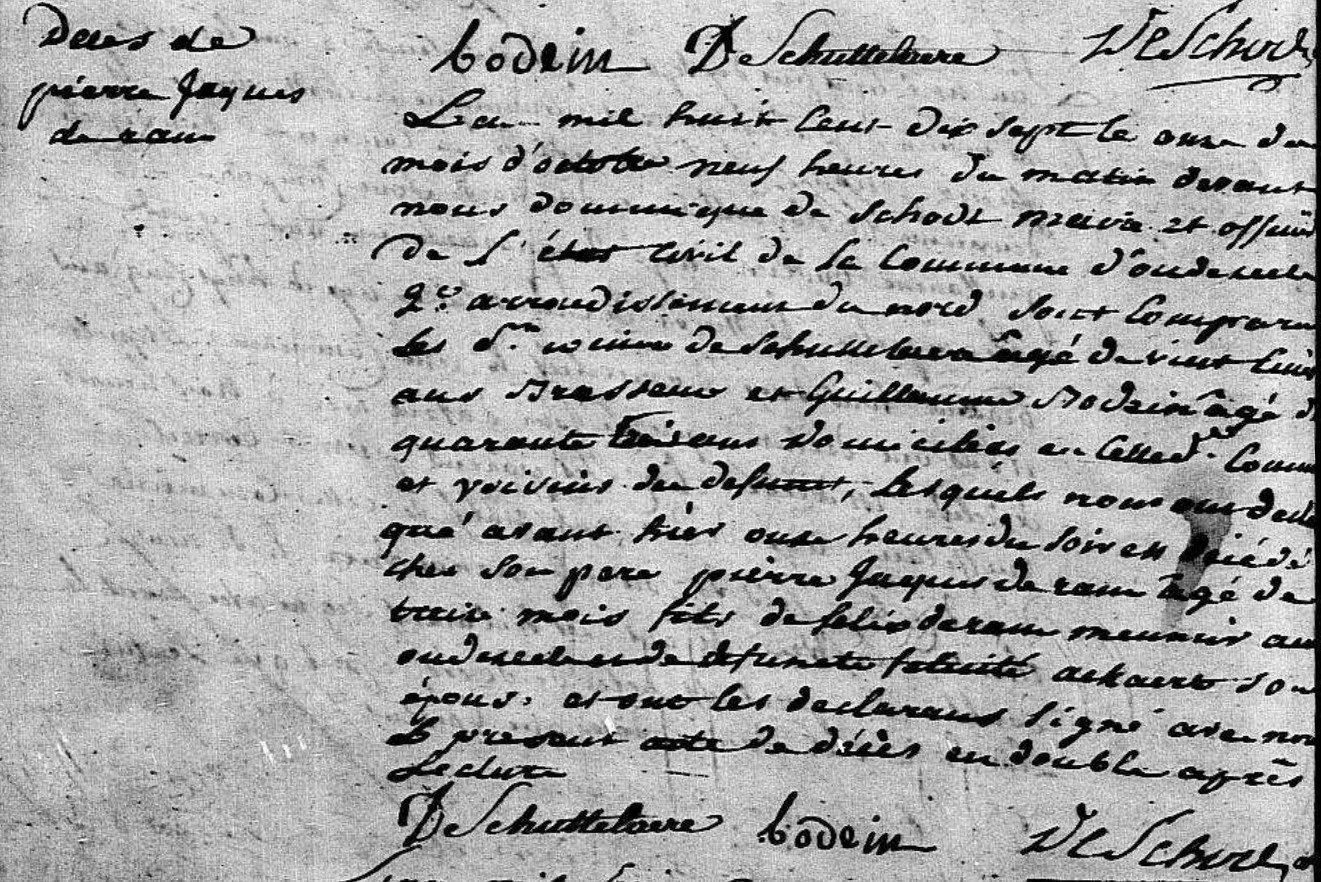 Deces de
pierre Jaques
deram
bodein DeSchuttelaere DeSchodt
L'an mil huit cent dix sept le onze du
mois d'octobre neuf heures du matin devant
nous dominique de Schodt maire et officier
de l'état civil de la commune d'oudezeele
2e arrondissement du nord sont comparu
les Srs winoc deSchuttelaere âgé de vint cinq
ans Brasseur et Guillaume Bodein âgé d
quarante trois ans domicilies en cette d. Comm
et voisins du defunt, Lesquels nous ont declaré
qué avant hier onze heures du soir est déc édé
chez son pere pierre Jaques deram âgé de
traize mois fils de felix deram meunier au
oudezeele et de defuncte felicité ackaert son
épous. et ont les declarans signé avec nou
le present acte de décès en double après
Lecture
DeSchuttelaere bodein DeSchodt